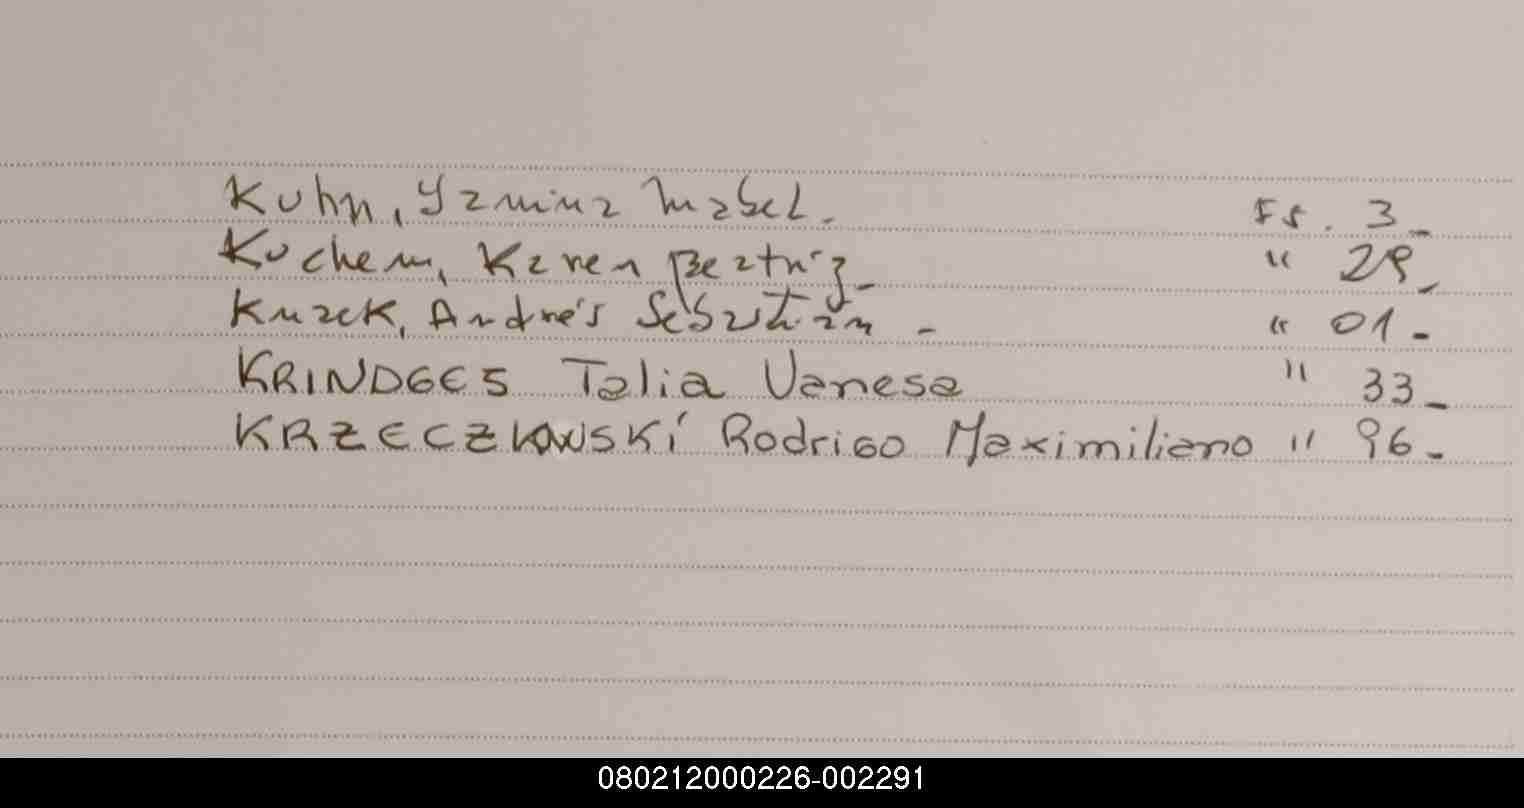 Kuhn, Yanina Mabel. Fs. 3_
Kuchem, Karen Beatriz_ " 29_
Kuzck, Andrés Sebastian - " 01-
KRINDGES Talia Vanesa " 33_
KRZECZKOWSKI Rodrigo Maximiliano " 96-
080212000226-002291